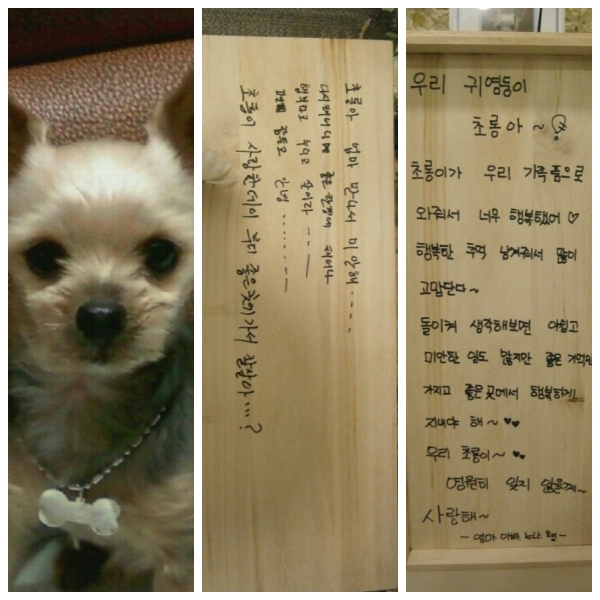 초롱아 엄마 만나서 미안해....
다시 태어나면 좋은 환경에 태어나
행복하고 누리고 살아라 - - —
잠들고 안녕 ......- - —
초롱이 사랑한데이 부디 좋은곳에가서 잘살아...?
우리 귀염둥이
초롱아 ~
초롱이가 우리 가족품으로
와줘서 너무 행복했어 ♡
행복한 추억 남겨줘서 많이
고맙단다~
돌이켜 생각해보면 아쉽고
미안한 일도 많지만 좋은 기억만
가지고 좋은곳에서 행복하게
지내야 해~ ♥♥
우리 초롱이~ ♥♥
영원히 잊지 않을게~
사랑해~
- 엄마 아빠 누나 형 -